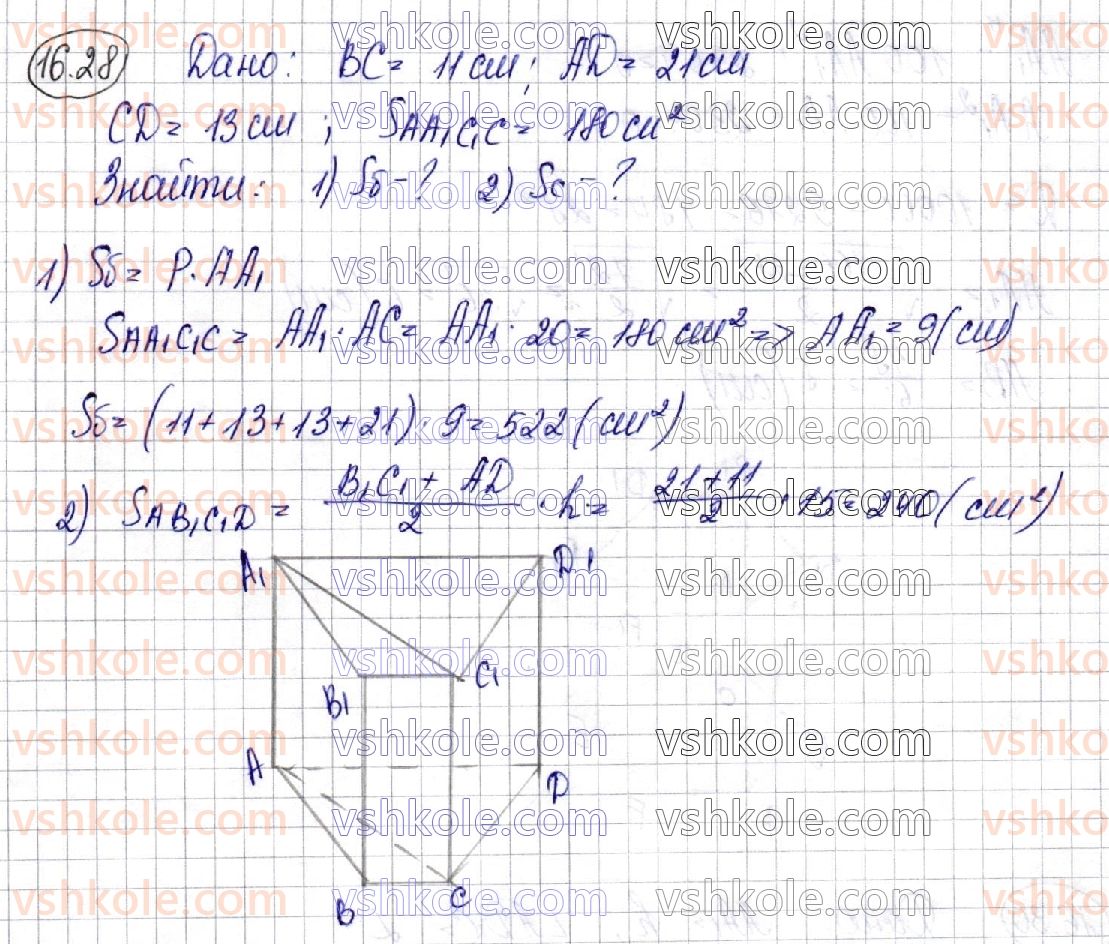 16.28 Дано: BC = 11 см; AD = 21 см
CD = 13 см; SAA₁C₁C = 180 см²
Знайти: 1) Sб - ? 2) Sc - ?
1) Sб = P · AA₁
SAA₁C₁C = AA₁ · AC = AA₁ · 20 = 180 см² => AA₁ = 9 (см)
Sб = (11 + 13 + 13 + 21) · 9 = 522 (см²)
2) SAB₁C₁D = (B₁C₁ + AD)/2 · h = (21 + 11)/2 · 15 = 240 (см²)
A₁ D1
B₁ C₁
A D
B C
vshkole.com